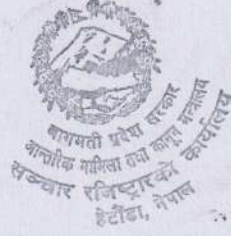 बागमती प्रदेश सरकार
आन्तरिक मामिला तथा कानून मन्त्रालय
सञ्चार रजिष्ट्रारको कार्यालय
हेटौंडा, नेपाल